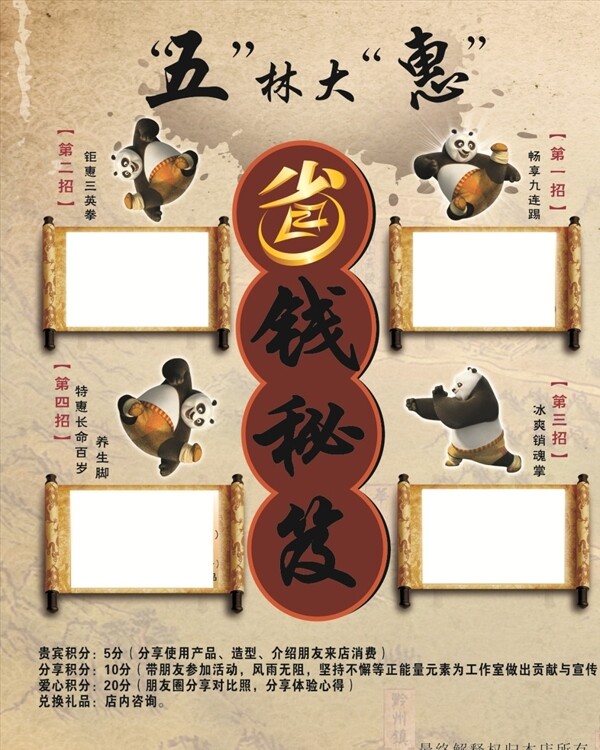 “五”林大“惠”
省
钱
秘
笈
【第一招】
畅享九连踢
【第二招】
钜惠三英拳
【第三招】
冰爽销魂掌
【第四招】
特惠长命百岁
养生脚
贵宾积分：5分（分享使用产品、造型、介绍朋友来店消费）
分享积分：10分（带朋友参加活动，风雨无阻，坚持不懈等正能量元素为工作室做出贡献与宣传
爱心积分：20分（朋友圈分享对比照，分享体验心得）
兑换礼品：店内咨询。
最终解释权归本店所有